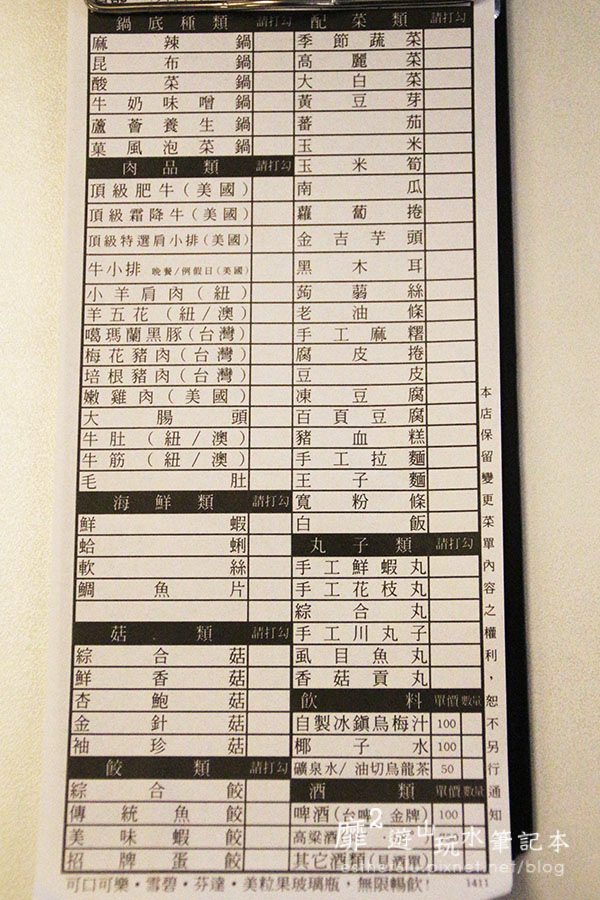 鍋底種類 請打勾
麻辣鍋
昆布鍋
酸菜鍋
牛奶味噌鍋
蘆薈養生鍋
菓風泡菜鍋
肉品類 請打勾
頂級肥牛(美國)
頂級霜降牛(美國)
頂級特選肩小排(美國)
牛小排 晚餐/例假日(美國)
小羊肩肉(紐)
羊五花(紐/澳)
噶瑪蘭黑豚(台灣)
梅花豬肉(台灣)
培根豬肉(台灣)
嫩雞肉(美國)
大腸頭
牛肚(紐/澳)
牛筋(紐/澳)
毛肚
海鮮類 請打勾
鮮蝦
蛤蜊
軟絲
鯛魚片
菇類 請打勾
綜合菇
鮮香菇
杏鮑菇
金針菇
袖珍菇
餃類 請打勾
綜合餃
傳統魚餃
美味蝦餃
招牌蛋餃
配菜類 請打勾
季節蔬菜
高麗菜
大白菜
黃豆芽
蕃茄
玉米
玉米筍
南瓜
蘿蔔捲
金吉芋頭
黑木耳
蒟蒻絲
老油條
手工麻糬
腐皮捲
豆皮
凍豆腐
百頁豆腐
豬血糕
手工拉麵
王子麵
寬粉條
白飯
丸子類 請打勾
手工鮮蝦丸
手工花枝丸
綜合丸
手工川丸子
虱目魚丸
香菇貢丸
飲料 單價 數量
自製冰鎮烏梅汁 100
椰子水 100
礦泉水/油切烏龍茶 50
酒類 單價 數量
啤酒(台啤 金牌) 100
高粱酒
其它酒類(見酒單)
本店保留變更菜單內容之權利，恕不另行通知
可口可樂·雪碧·芬達·美粒果玻璃版，無限暢飲!
1411
靡²遊山玩水筆記本